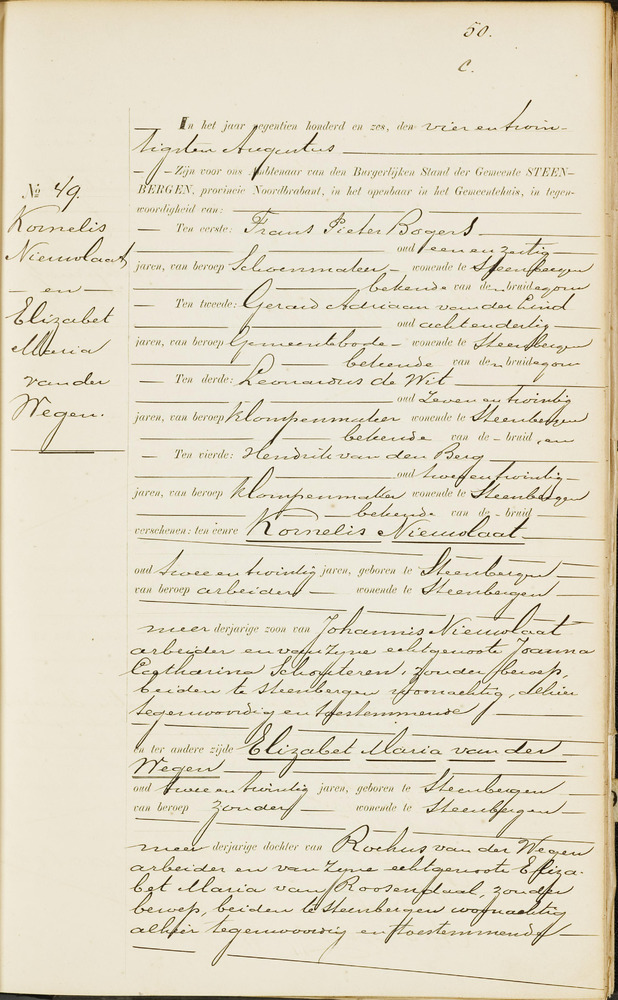 50.
C.
In het jaar negentien honderd en zes, den vier en twin-
tigsten Augustus
Zijn voor ons Ambtenaar van den Burgerlijken Stand der Gemeente STEEN-
BERGEN, provincie Noordbrabant, in het openbaar in het Gemeentehuis, in tegen-
woordigheid van:
No 49.
Kornelis
Nieuwlaat,
- en -
Elizabet
Maria
van der
Wegen.
Ten eerste: Frans Pieter Bogers
oud een en zestig
jaren, van beroep Schoenmaker wonende te Steenbergen
bekende van den bruidegom
Ten tweede: Gerard Adriaan van der Lind
oud acht en dertig
jaren, van beroep Gemeentebode wonende te Steenbergen
bekende van den bruidegom
Ten derde: Leonardus de Wit
oud zeven en twintig
jaren, van beroep klompenmaker wonende te Steenbergen
bekende van de bruid, en
Ten vierde: Hendrik van den Berg
oud twee en twintig
jaren, van beroep klompenmaker wonende te Steenbergen
bekende van de bruid
verschenen: ten eenre Kornelis Nieuwlaat
oud twee en twintig jaren, geboren te Steenbergen
van beroep arbeider wonende te Steenbergen
meer derjarige zoon van Johannis Nieuwlaat
arbeider en van zyne echtgenoote Joanna
Catharina Schouteren, zonder beroep,
beiden te Steenbergen woonachtig, alhier
tegenwoordig en toestemmende
en ter andere zijde Elizabet Maria van der
Wegen
oud twee en twintig jaren, geboren te Steenbergen
van beroep zonder wonende te Steenbergen
meer derjarige dochter van Rochus van der Wegen
arbeider en van zyne echtgenoote Eliza-
bet Maria van Roosendaal, zonder
beroep, beiden te Steenbergen woonachtig
alhier tegenwoordig en toestemmende